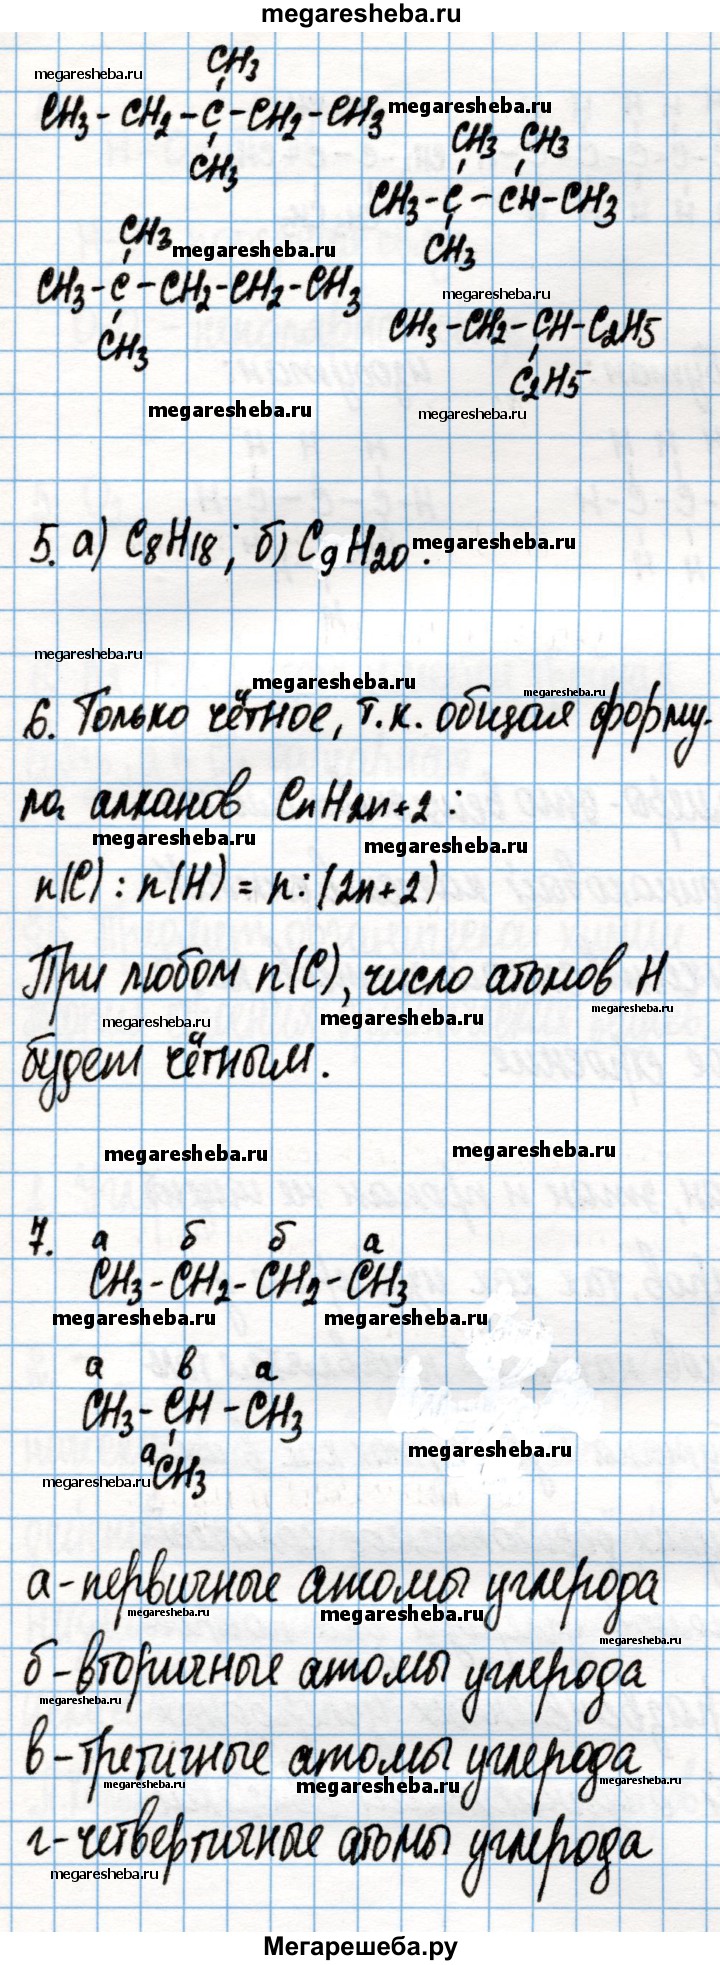 megaresheba.ru
CH3
megaresheba.ru
CH3-CH2-C-CH2-CH3
megaresheba.ru
CH3
CH3 CH3
CH3-C-CH-CH3
CH3
CH3
megaresheba.ru
CH3-C-CH2-CH2-CH3
CH3
megaresheba.ru
CH3-CH2-CH-C2H5
C2H5
megaresheba.ru
megaresheba.ru
5. а) C8H18; б) C9H20.
megaresheba.ru
megaresheba.ru
megaresheba.ru
megaresheba.ru
6. Только чётное, т.к. общая форму-
ла алканов CnH2n+2:
megaresheba.ru
megaresheba.ru
n(C) : n(H) = n : (2n+2)
При любом n(C), число атомов H
megaresheba.ru
megaresheba.ru
megaresheba.ru
будет чётным.
megaresheba.ru
megaresheba.ru
7. а б б а
CH3-CH2-CH2-CH3
megaresheba.ru
megaresheba.ru
а в а
CH3-CH-CH3
megaresheba.ru
а CH3
megaresheba.ru
а-первичные атомы углерода
megaresheba.ru
megaresheba.ru
megaresheba.ru
б-вторичные атомы углерода
megaresheba.ru
в-третичные атомы углерода
megaresheba.ru
megaresheba.ru
megaresheba.ru
г-четвертичные атомы углерода
megaresheba.ru
Мегарешеба.ру